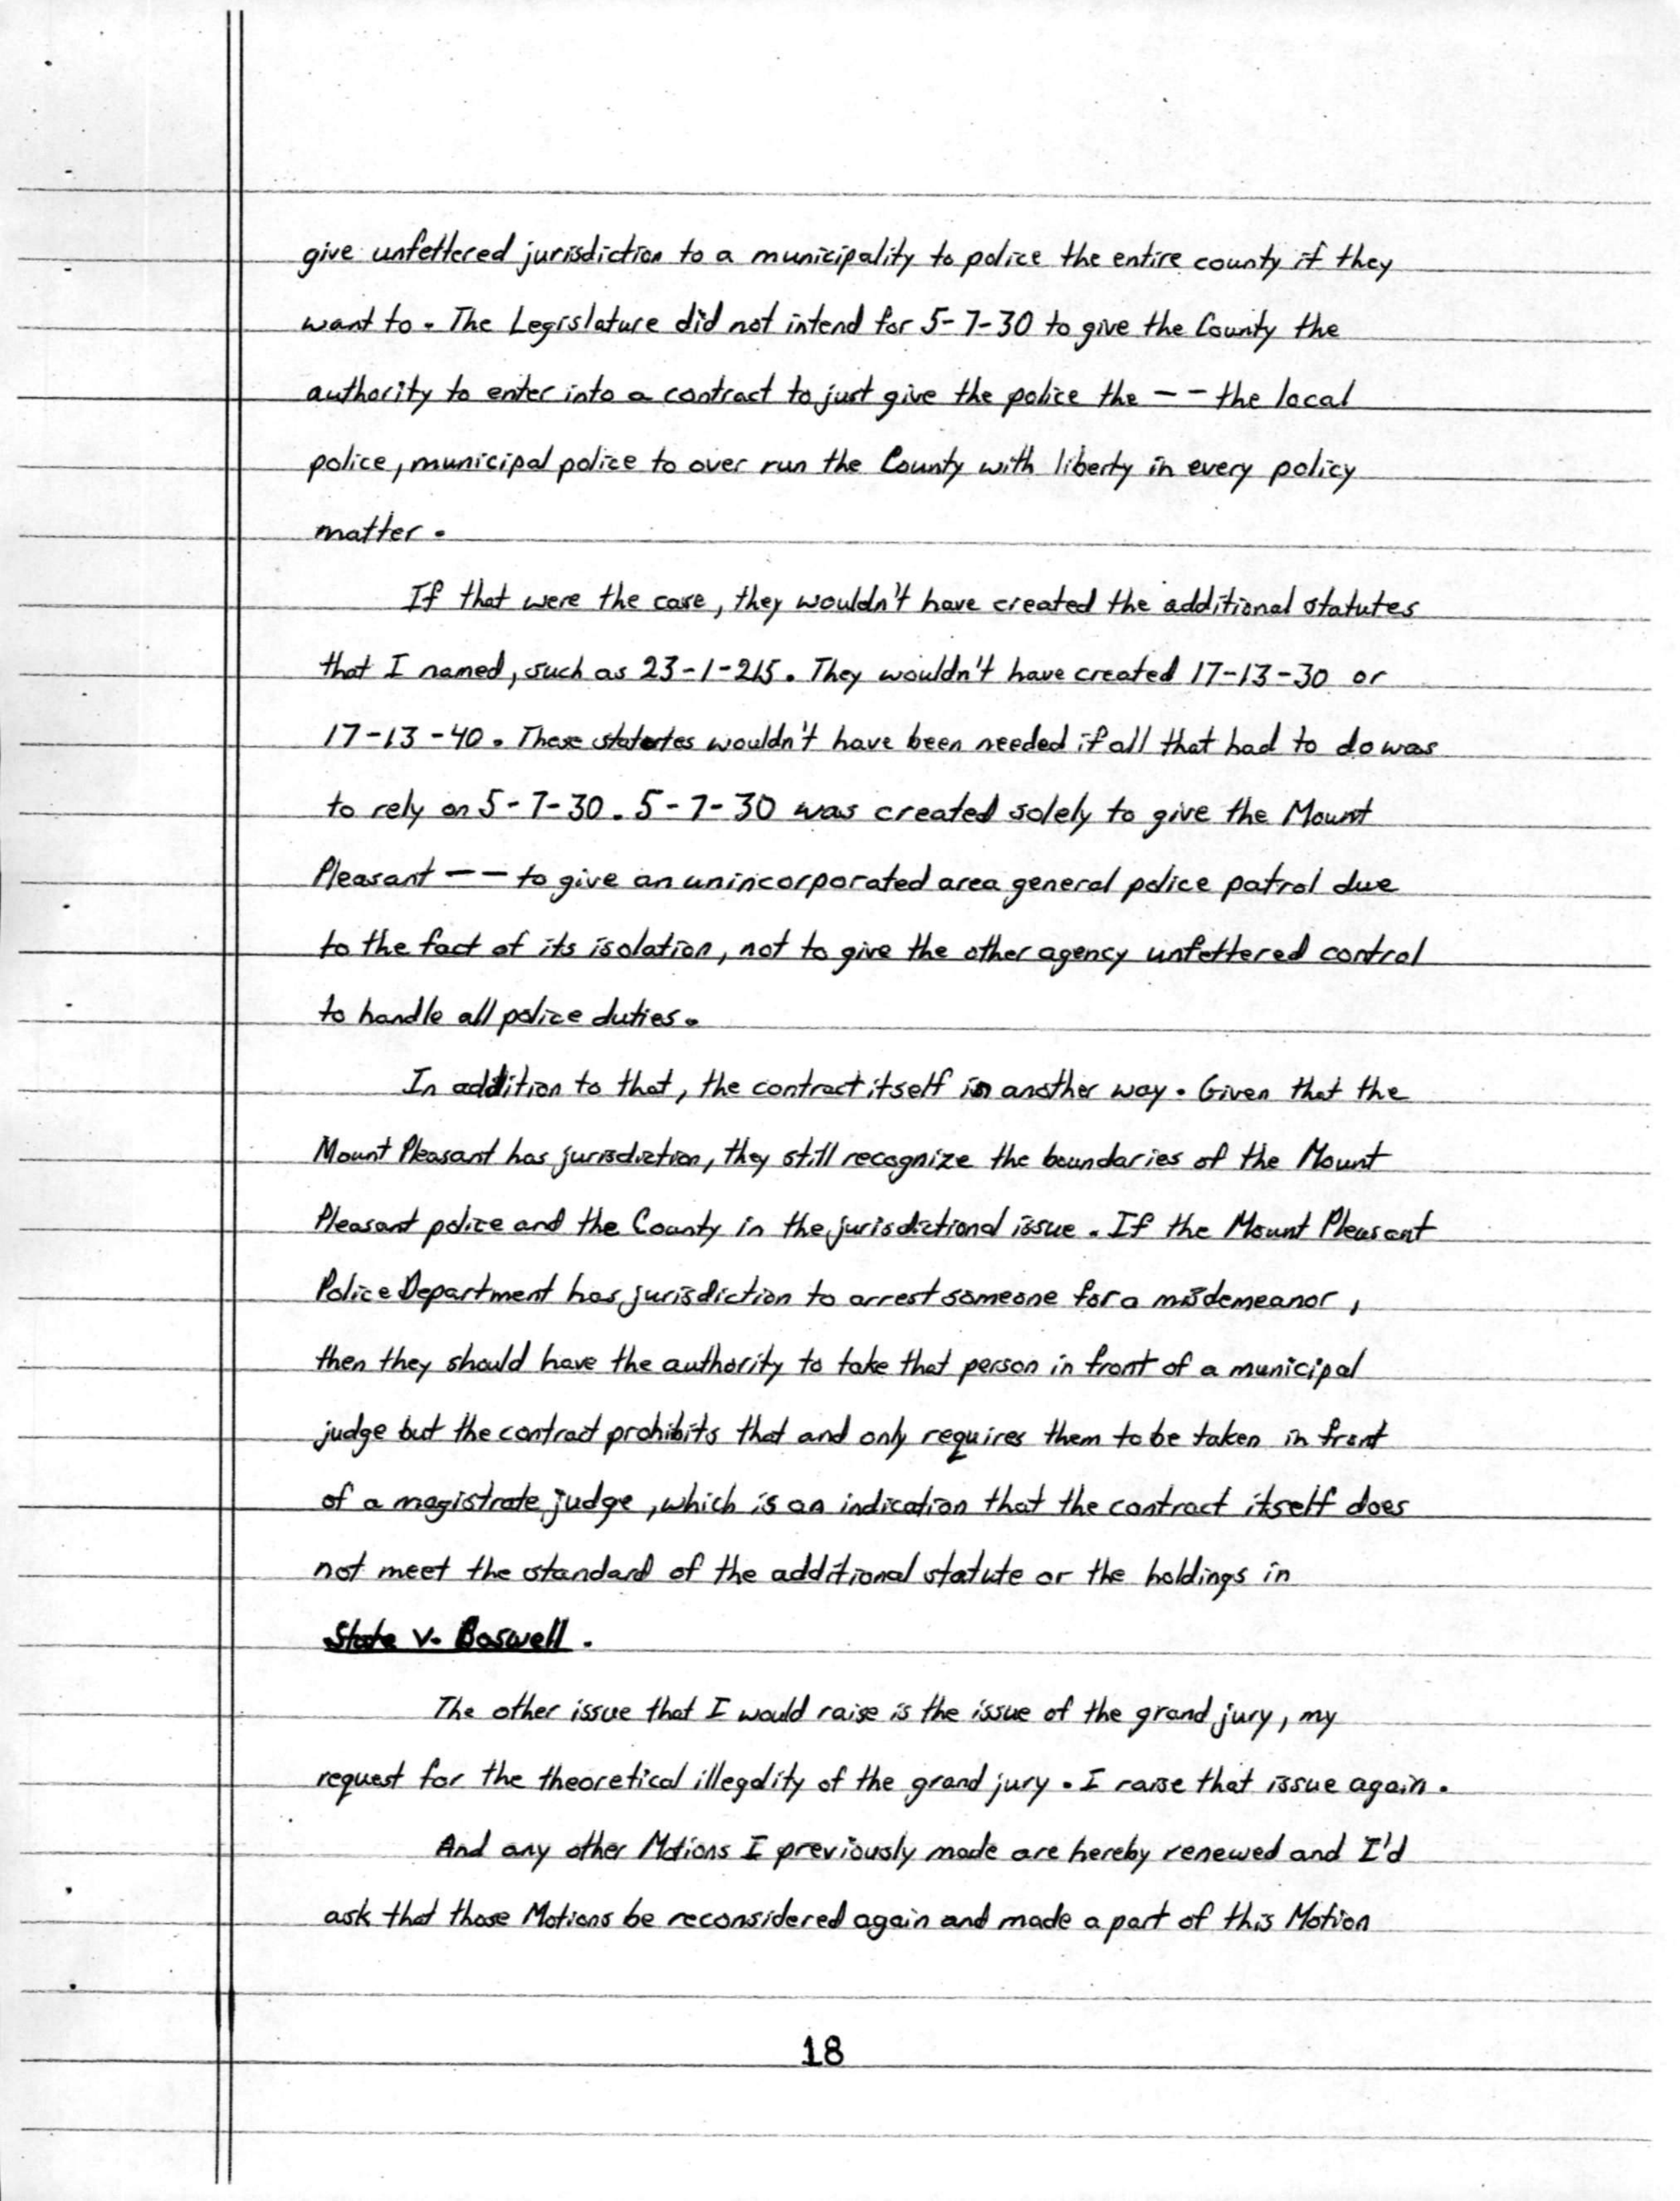 give unfettered jurisdiction to a municipality to police the entire county if they
want to. The Legislature did not intend for 5-7-30 to give the County the
authority to enter into a contract to just give the police the -- the local
police, municipal police to over run the County with liberty in every policy
matter.
If that were the case, they wouldn't have created the additional statutes
that I named, such as 23-1-215. They wouldn't have created 17-13-30 or
17-13-40. These statutes wouldn't have been needed if all that had to do was
to rely on 5-7-30. 5-7-30 was created solely to give the Mount
Pleasant -- to give an unincorporated area general police patrol due
to the fact of its isolation, not to give the other agency unfettered control
to handle all police duties.
In addition to that, the contract itself in another way. Given that the
Mount Pleasant has jurisdiction, they still recognize the boundaries of the Mount
Pleasant police and the County in the jurisdictional issue. If the Mount Pleasant
Police Department has jurisdiction to arrest someone for a misdemeanor,
then they should have the authority to take that person in front of a municipal
judge but the contract prohibits that and only requires them to be taken in front
of a magistrate judge, which is an indication that the contract itself does
not meet the standard of the additional statute or the holdings in
State v. Boswell.
The other issue that I would raise is the issue of the grand jury, my
request for the theoretical illegality of the grand jury. I raise that issue again.
And any other Motions I previously made are hereby renewed and I'd
ask that those Motions be reconsidered again and made a part of this Motion
18